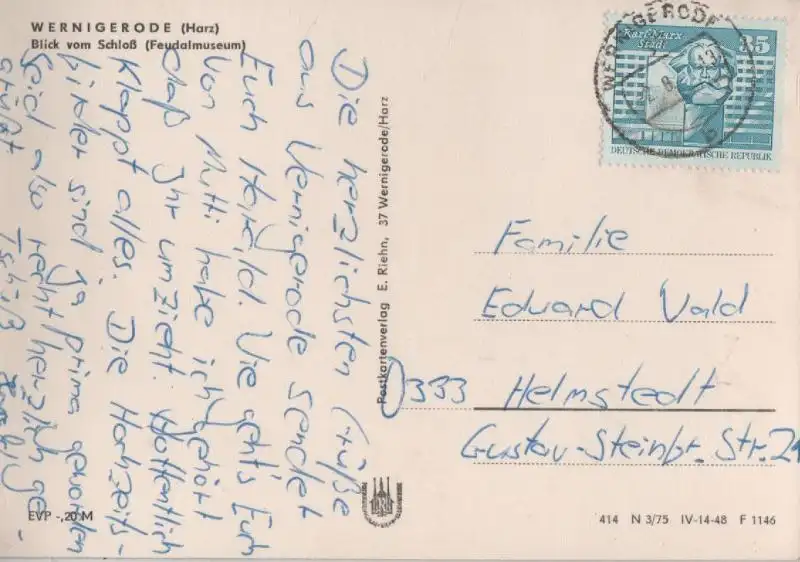 WERNIGERODE (Harz)
Blick vom Schloß (Feudalmuseum)
Die herzlichsten Grüße
aus Wernigerode sendet
Euch Harald. Wie geht's Euch
Von Mutti habe ich gehört
daß Ihr umzieht. Hoffentlich
klappt alles. Die Hochzeits-
bilder sind ja prima geworden
Seid also recht herzlich ge-
grüßt Tschüß Harald
EVP -,20 M
Postkartenverlag E. Riehn, 37 Wernigerode/Harz
WERNIGERODE
Karl-Marx-
Stadt
35
DEUTSCHE DEMOKRATISCHE REPUBLIK
Familie
Eduard Wald
D333 Helmstedt
Gustav-Steinbr. Str. 21
414 N 3/75 IV-14-48 F 1146